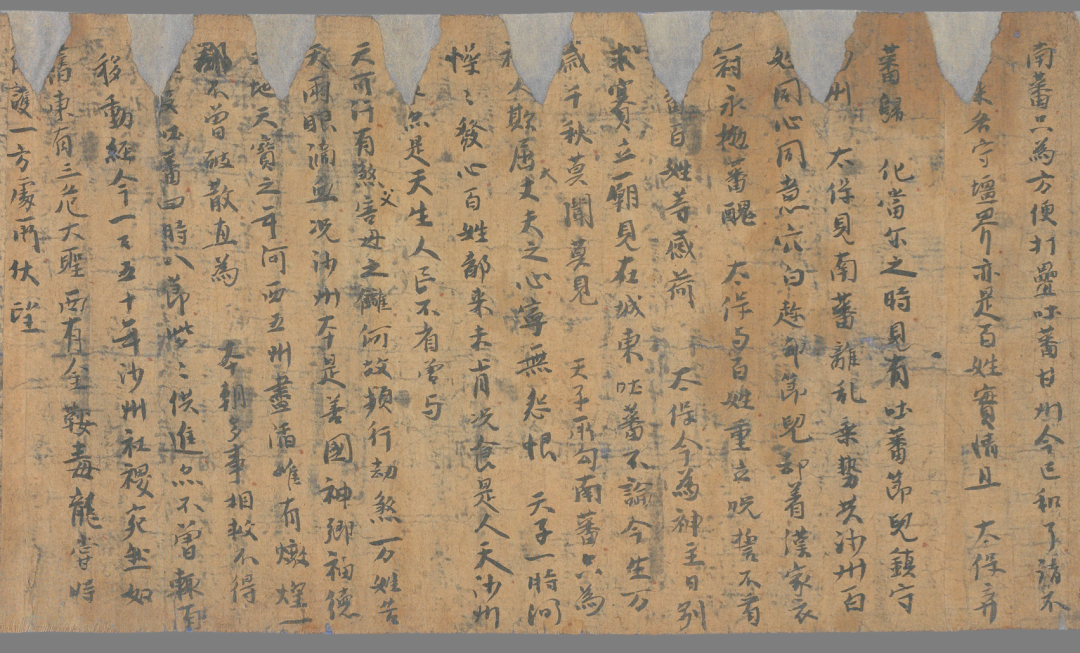 南蕃只為方便打疊吐蕃甘州今已和了請不
来各守壃界亦是百姓實情且　太保弃
蕃歸　化當尔之時見有吐蕃節兒鎮守
州　太保見南蕃離乱乘勢共沙州百
姓同心同意穴白趂却節兒却着漢家衣
冠永抛蕃醜　太保与百姓重立咒誓不着
百姓等感荷　太保今為神主日別
求賽立廟見在城東吐蕃不論今生万
歲千秋莫聞莫見　天子所勾南蕃只為
人欺屈大丈夫之心寧無怨恨　天子一時㳂
懆〻發心百姓都来未肯況食是人天沙州
尒是天生人民不省曾与
天可汗有煞父害母之讎何故頻行劫煞万姓告
天兩眼滴血況沙州本是善國神鄉福德
之地天寶之年河西五州盡陷唯有燉煌一
郡不曾破散直為　本朝多事相救不得
没吐蕃四時八節些〻供進亦不曾輙有
移動經今一百五十年沙州社稷宛然如
舊東有三危大聖西有金鞍毒龍嘗時
護一方處所伏望